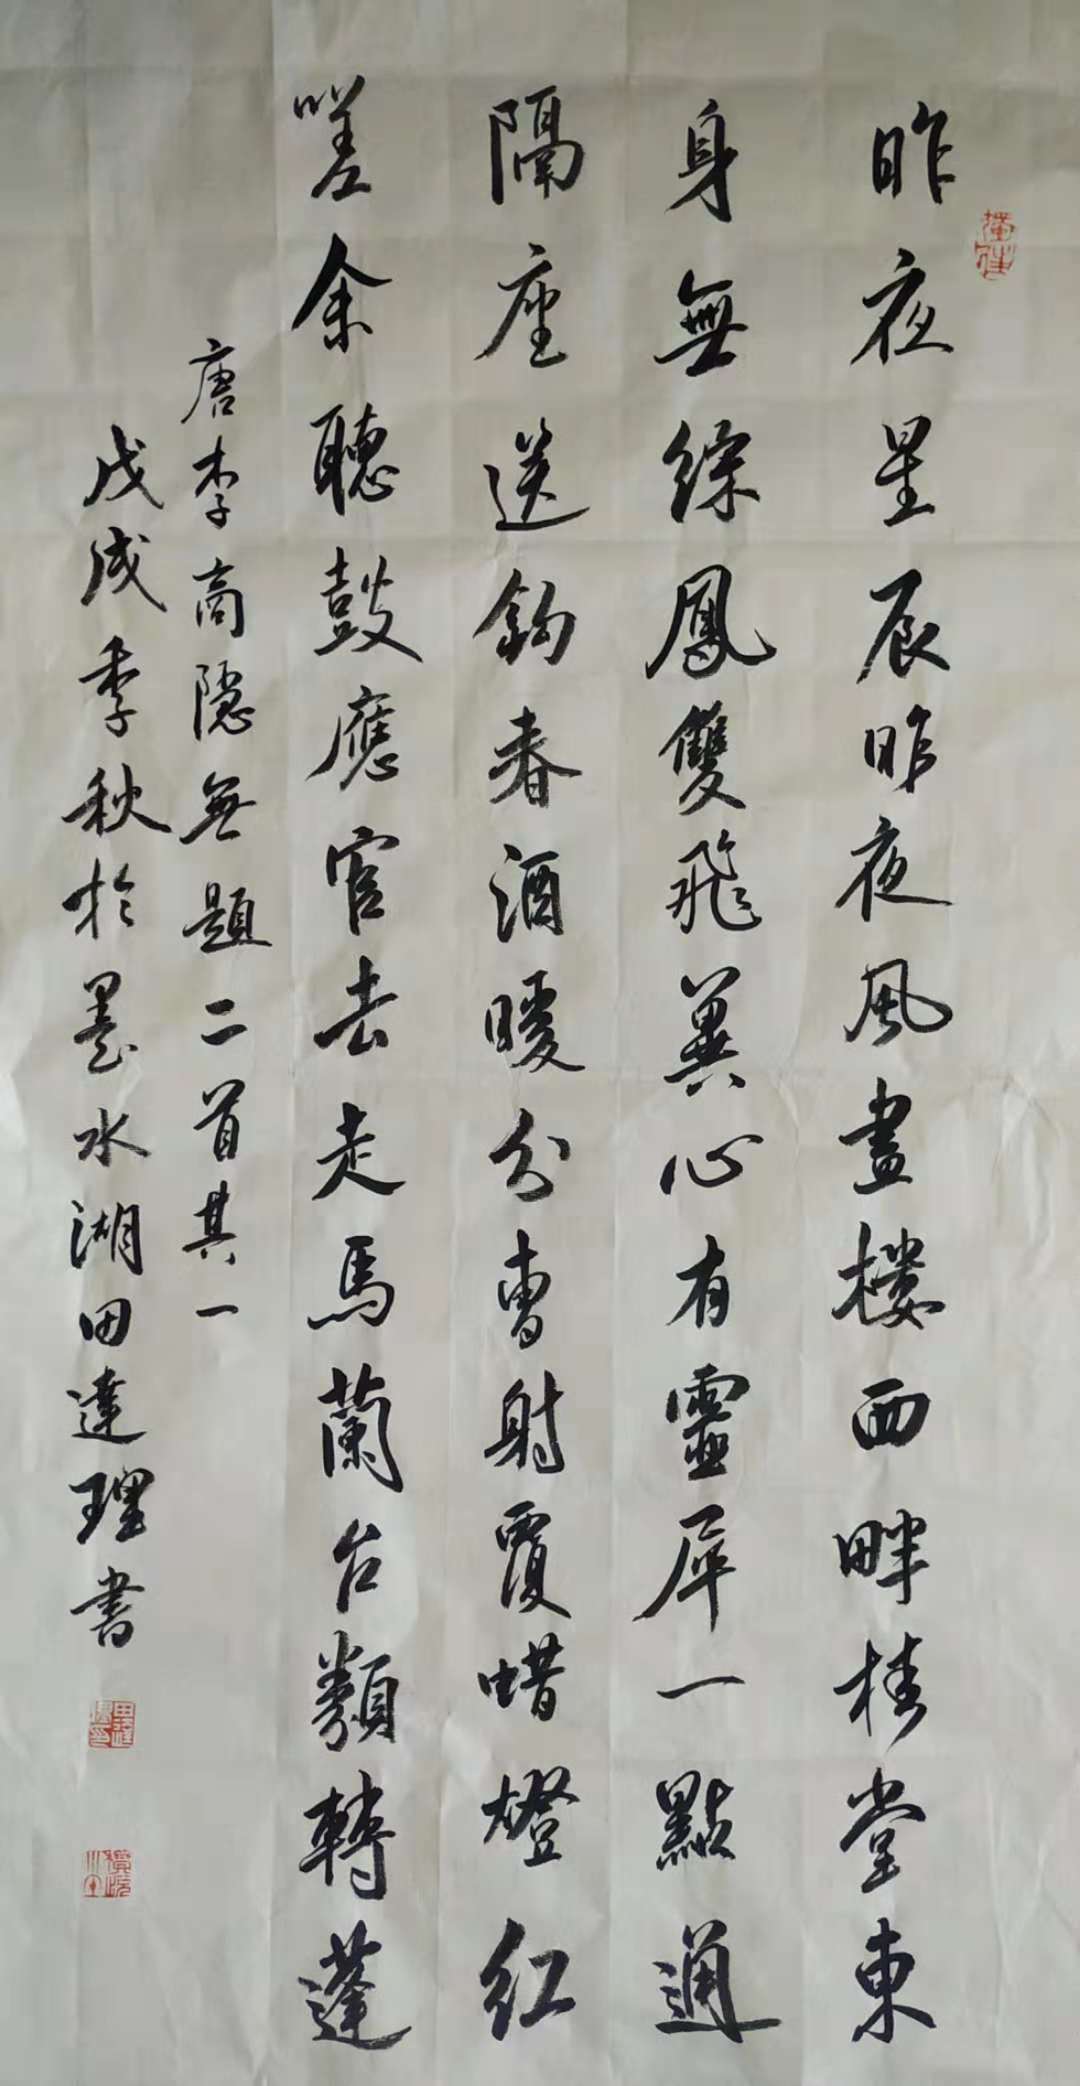 昨夜星辰昨夜風畫樓西畔桂堂東
身無綵鳳雙飛翼心有靈犀一點通
隔座送鉤春酒暖分曹射覆蜡燈紅
嗟余聽鼓應官去走馬蘭台類轉蓬
唐李商隱無題二首其一
戊戌季秋於墨水湖田達理書